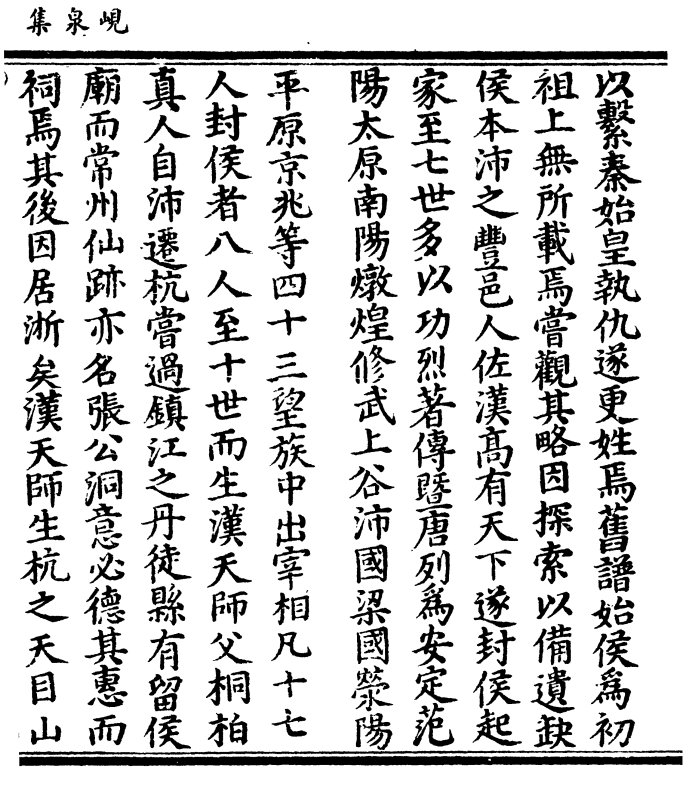 峴泉集
以繫秦始皇執仇遂更姓焉舊譜始侯爲初
祖上無所載焉嘗觀其略因探索以備遺缺
侯本沛之豐邑人佐漢高有天下遂封侯起
家至七世多以功烈著傳暨唐列爲安定范
陽太原南陽燉煌修武上谷沛國梁國滎陽
平原京兆等四十三望族中出宰相凡十七
人封侯者八人至十世而生漢天師父桐柏
真人自沛遷杭嘗過鎮江之丹徒縣有留侯
廟而常州仙跡亦名張公洞意必德其惠而
祠焉其後因居浙矣漢天師生杭之天目山